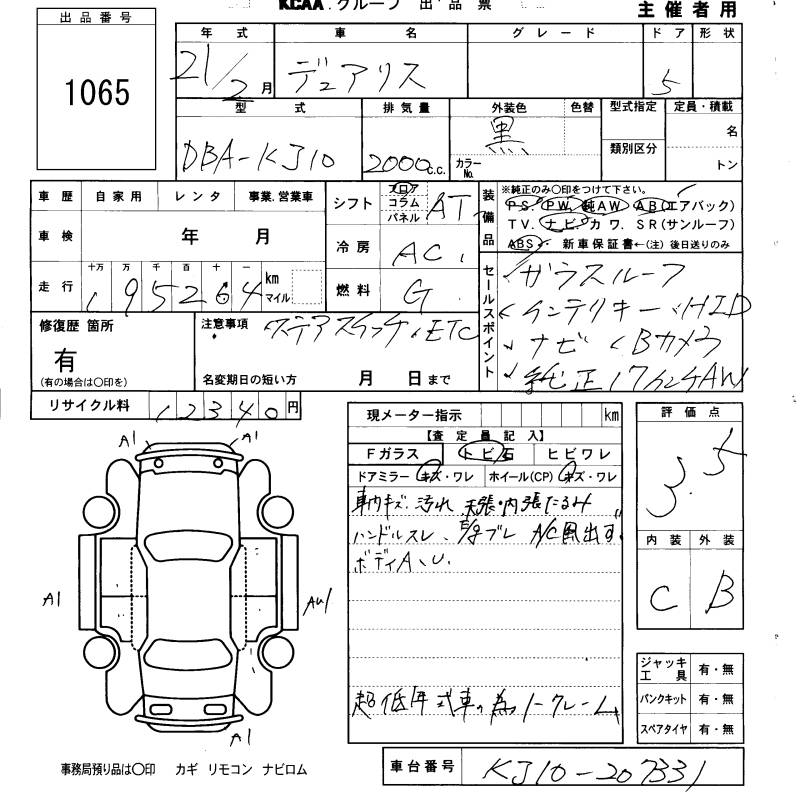 KCAA.グループ 出品票
主催者用
出品番号
1065
年式 車名 グレード ドア 形状
21/2月 デュアリス 5
型式 排気量 外装色 色替 型式指定 定員・積載
DBA-KJ10 2000c.c. 黒 カラーNo. 類別区分 名
トン
車歴 自家用 レンタ 事業.営業車
シフト フロア コラム パネル AT
装備品 ※純正のみ〇印をつけて下さい。
PS. PW. 純AW AB(エアバック)
TV. ナビ. カワ. SR(サンルーフ)
ABS. 新車保証書←(注)後日送りのみ
車検 年 月
冷房 AC.
走行 十万 万 千 百 十 一
195264 km マイル
燃料 G.
セールスポイント
ガラスルーフ
インテリキー、HID
ナビ Bカメラ
純正17インチAW
修復歴 箇所
有
(有の場合は〇印を)
注意事項 ステアスイッチ.ETC
名変期日の短い方 月 日まで
リサイクル料 12340円
現メーター指示 km
【査定員記入】
Fガラス トビ石 ヒビワレ
ドアミラー キズ・ワレ ホイール(CP) キズ・ワレ
車内キズ.汚れ 天張・内張たるみ
ハンドルスレ、 ブレ A/C風出ず
ボディA、U.
超低年式車の為ノークレーム
評価点
3.5
内装 外装
C B
ジャッキ工具 有・無
パンクキット 有・無
スペアタイヤ 有・無
A1 A1
A1 AU1
A1
事務局預り品は〇印 カギ リモコン ナビロム
車台番号 KJ10-207331